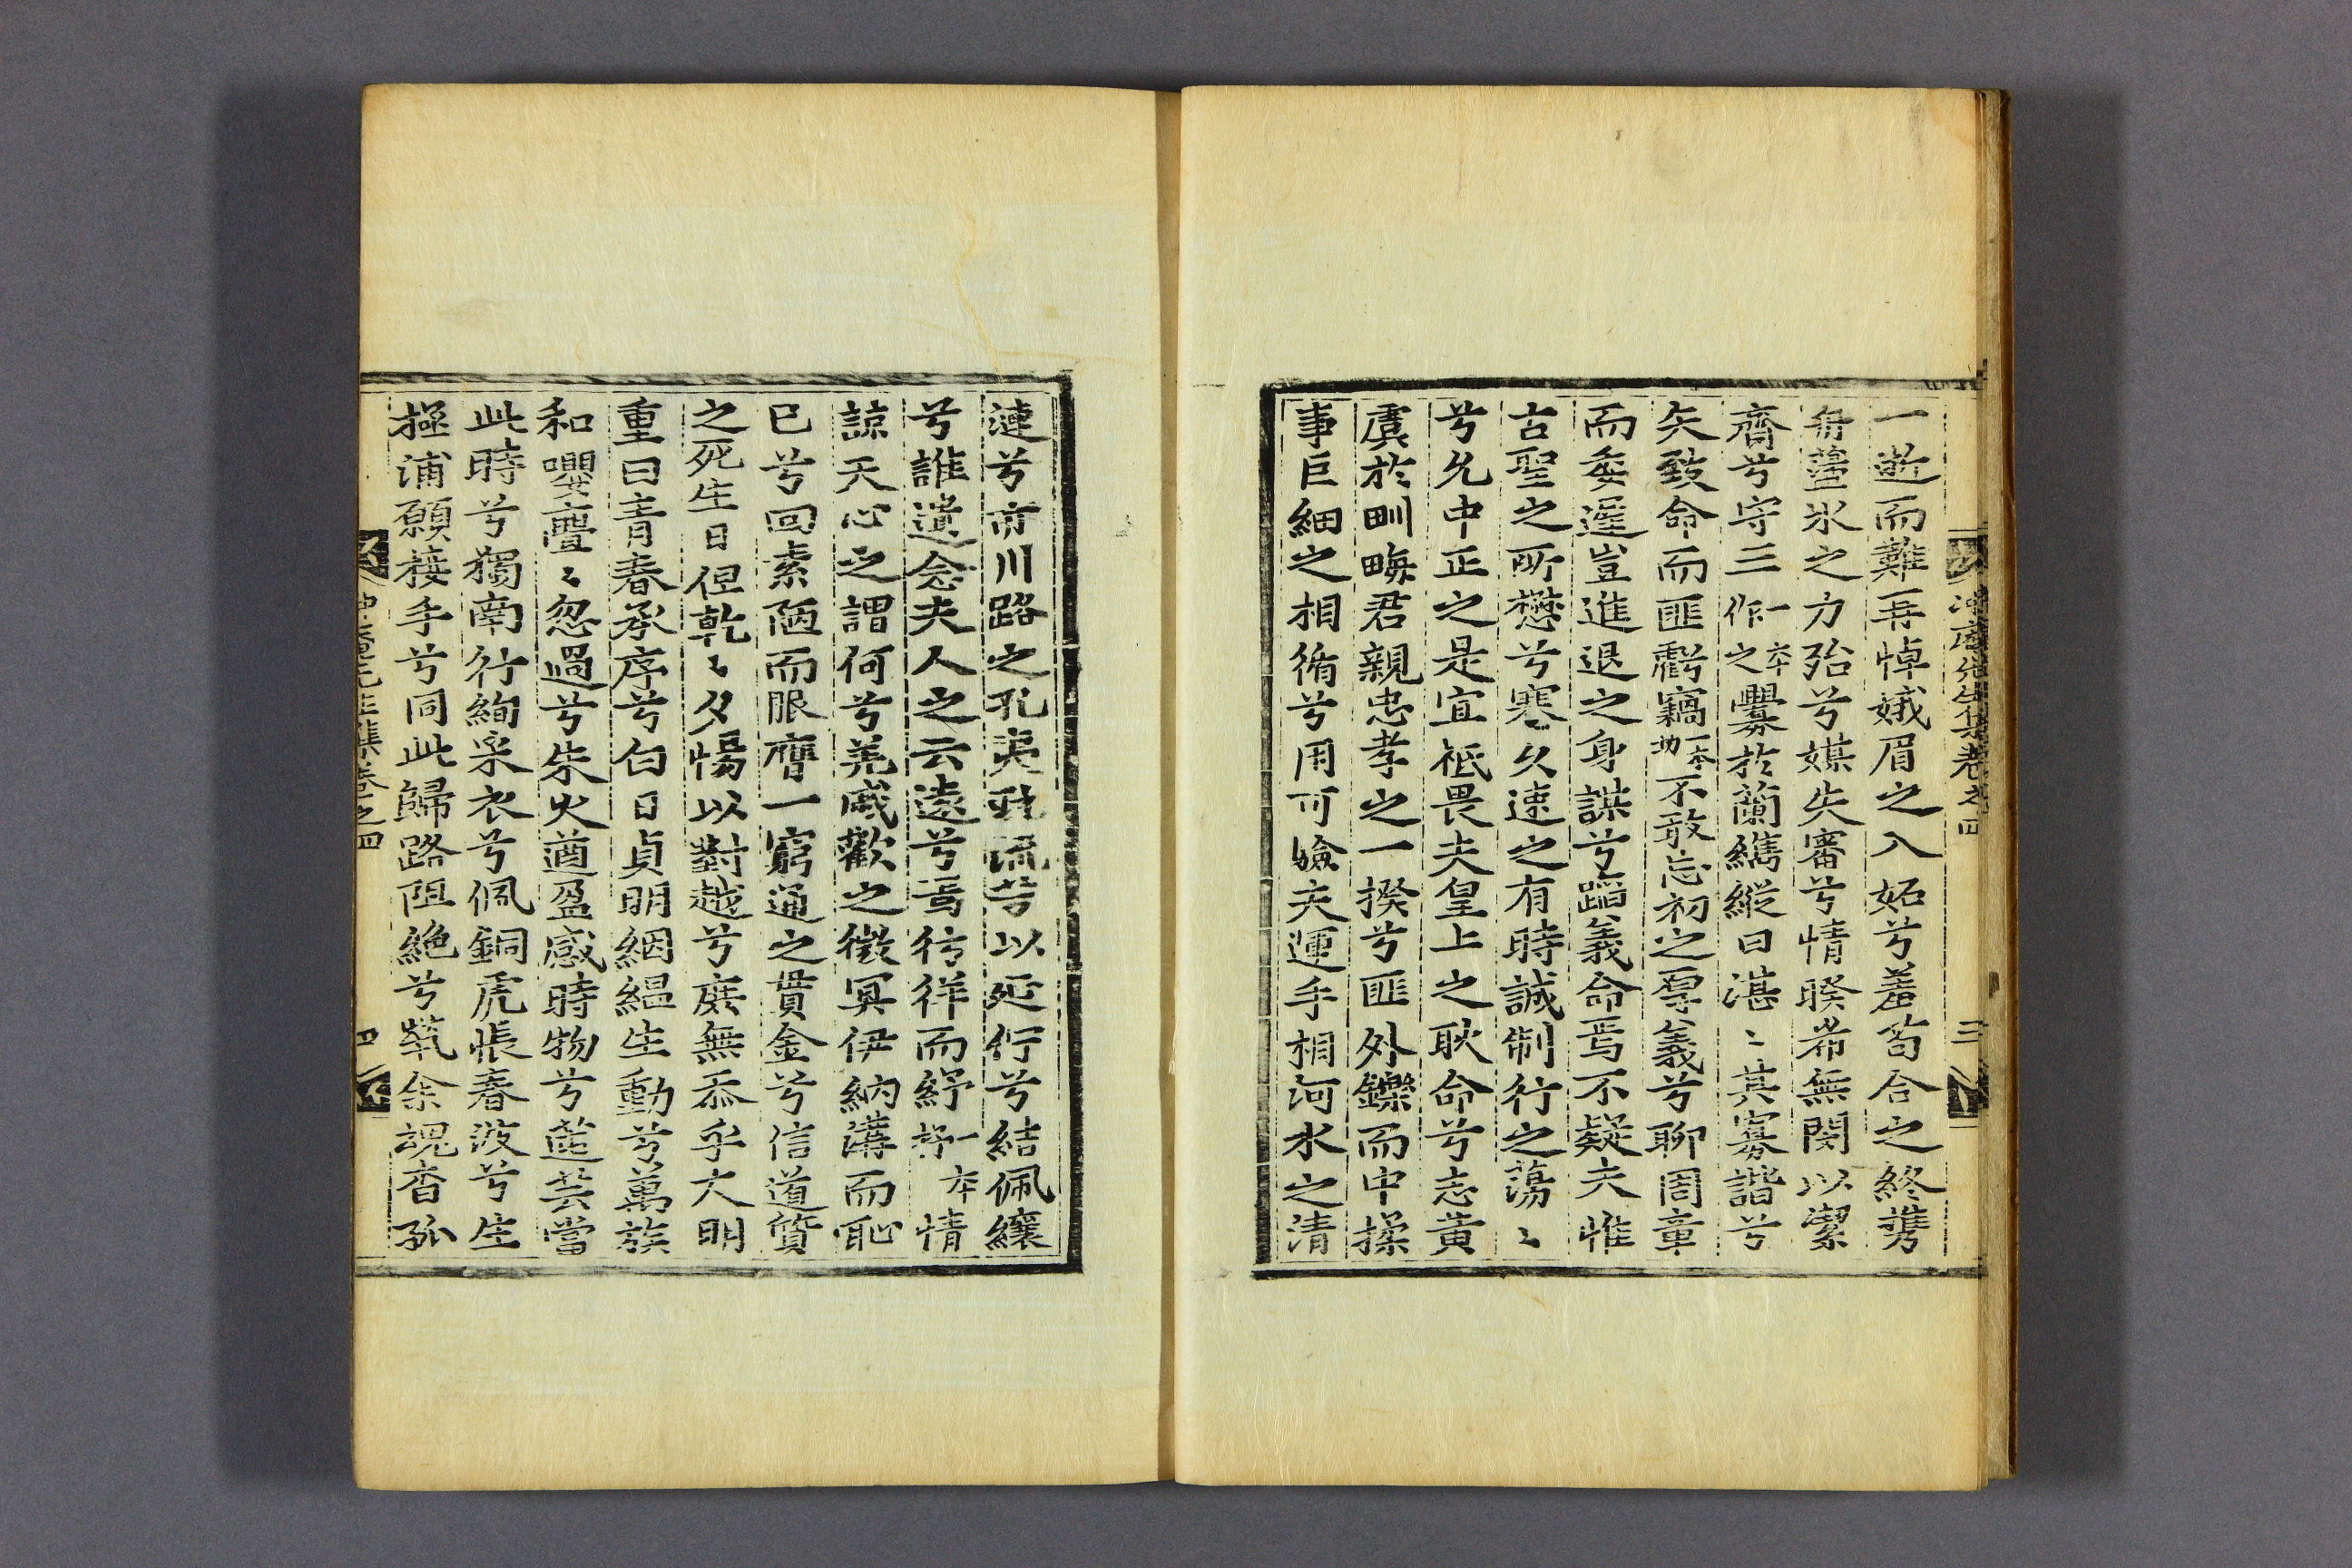 一逝而難再悼娥眉之入妬兮羞苟合之終携
無蠒氷之力殆兮媒失審兮情睽希無関以潔
齊兮守三一本作之釁於蘭縄縱曰湛〻其寡諧兮
矢致命而匪虧竊一本劫不敢忘初之厚義兮聊周章
而委遲豈進退之身謀兮蹈義命焉不疑夫惟
古聖之所懋兮寒久速之有時誠制行之蕩〻
兮允中正之是宜祗畏夫皇上之耿命兮志黃
虞於甽畮君親忠孝之一揆兮匪外鑠而中揉
事巨細之相循兮用可驗夫運手相河水之清
漣兮市川路之孔夷耽流芳以延行兮結佩纕
兮誰遺念夫人之云遠兮焉彷徉而紓一本抒情
諒天心之謂何兮羌咸歡之徵冥伊納溝而恥
已兮回素陋而服膺一窮通之貫金兮信道質
之死生日但乾〻夕惕以對越兮庶無忝乎大明
重曰靑春承序兮白日貞明絪縕生動兮萬族
和嚶亹〻忽過兮朱火遒盈感時物兮莚芸當
此時兮獨南行絢采衣兮佩銅虎悵春波兮生
極浦願接手兮同此歸路阻絶兮煢余魂杳弥
冲庵先生集卷之四 三
冲庵先生集卷之四 四